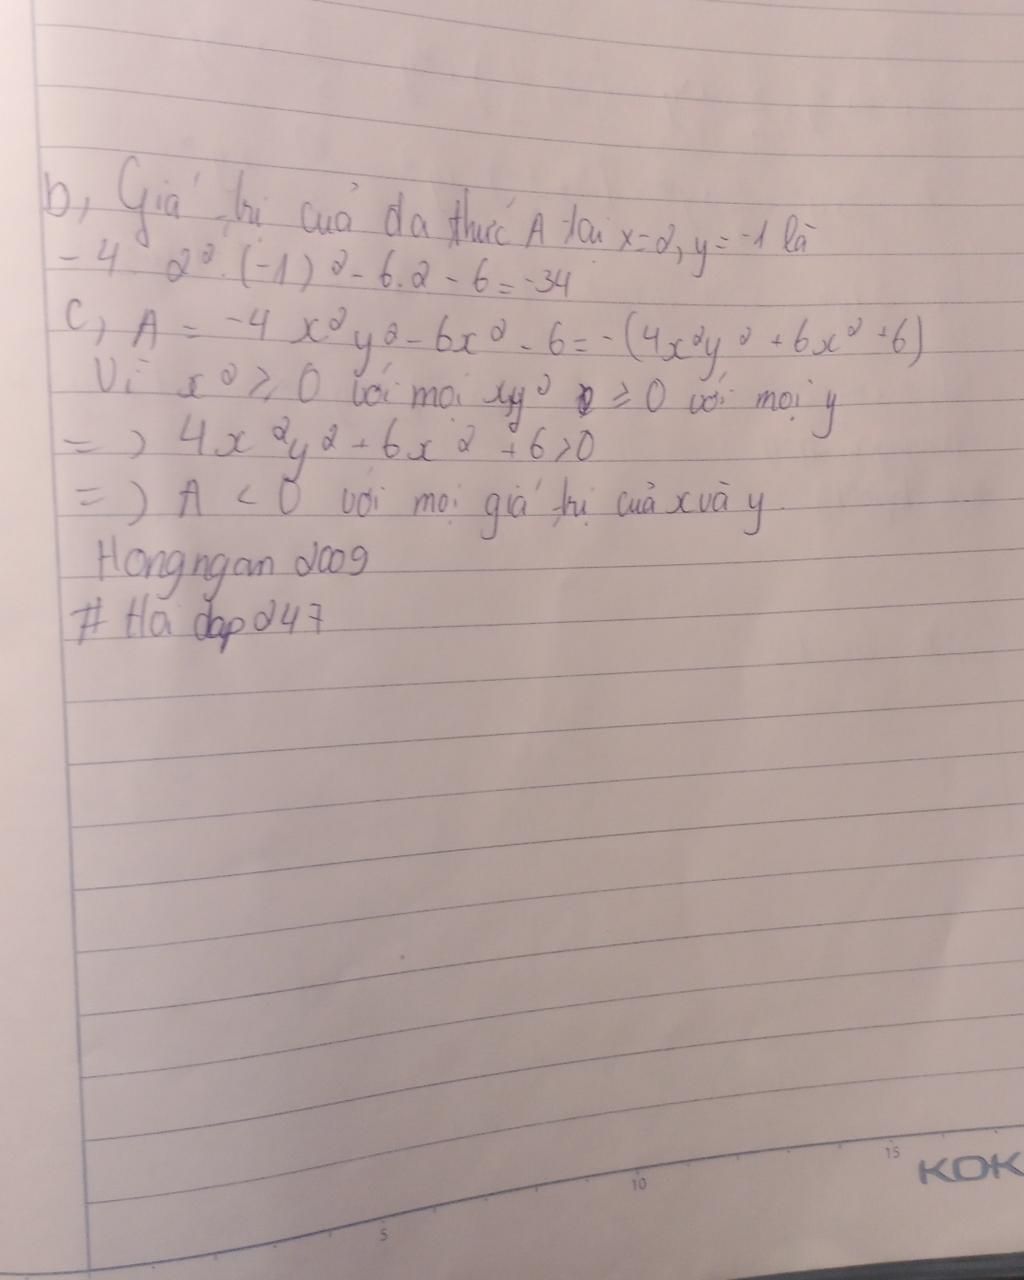 b, Giá trị của đa thức A tại x=2, y=-1 là
-4 2². (-1)² - 6.2 - 6 = -34
c, A = -4x²y² - 6x² - 6 = -(4x²y² + 6x² + 6)
Vì x² ≥ 0 với mọi x, y² ≥ 0 với mọi y
=> 4x²y² + 6x² + 6 > 0
=> A < 0 với mọi giá trị của x và y
Hongngan 2009
# Hỏi đáp 247
5
10
15
KOK